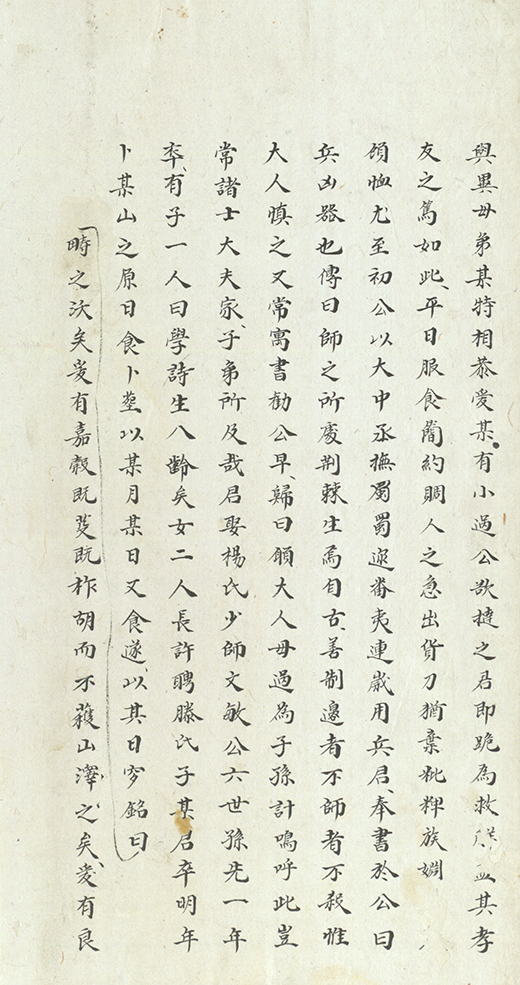 與異母弟某特相恭愛某有小過公欲撻之君即跪為救解盖其孝
友之篤如此平日服食簡約賙人之急出貨刀猶棄粃粺族婣
頌恤尤至初公以大中丞撫蜀蜀遊畨夷連歲用兵君奉書於公曰
兵凶器也傳曰師之所處荆棘生焉自古善制邊者不師者不殺惟
大人慎之又常寓書勸公早歸曰願大人毋過為子孫計嗚呼此豈
常諸士大夫家子弟所及哉君娶楊氏少師文敏公六世孫先一年
卒有子一人曰學詩生八齡矣女二人長許聘滕氏子某君卒明年
卜某山之原日食卜塟以某月某日又食遂以其日窆銘曰
疇之沃矣爰有嘉穀既芟既柞胡而不穫山澤之矣爰有良